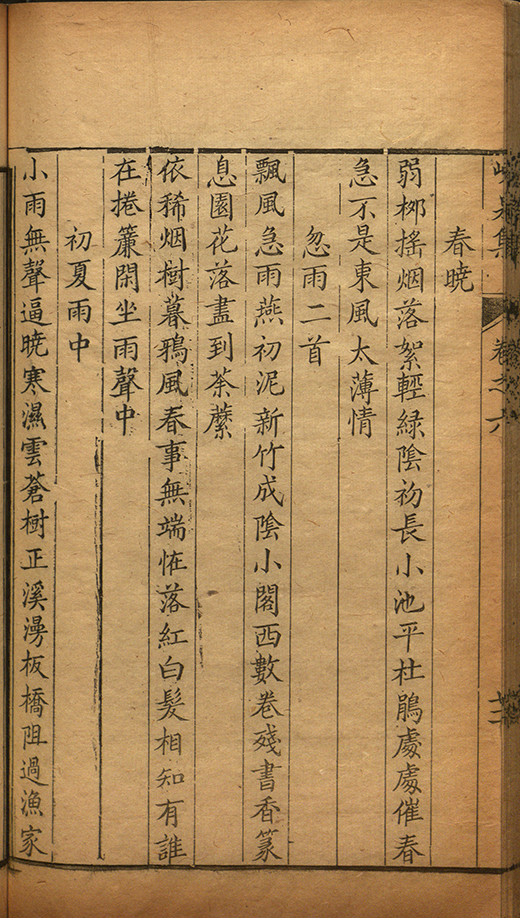 峴泉集　卷之六
春曉
弱桺搖烟落絮輕綠陰初長小池平杜鵑處處催春
急不是東風太薄情
忽雨二首
飄風急雨燕初泥新竹成陰小閣西數卷殘書香篆
息園花落盡到荼蘼
依稀烟樹暮鴉風春事無端恠落紅白髮相知有誰
在捲簾閑坐雨聲中
初夏雨中
小雨無聲逼曉寒濕雲蒼樹正溪湯板橋阻過漁家